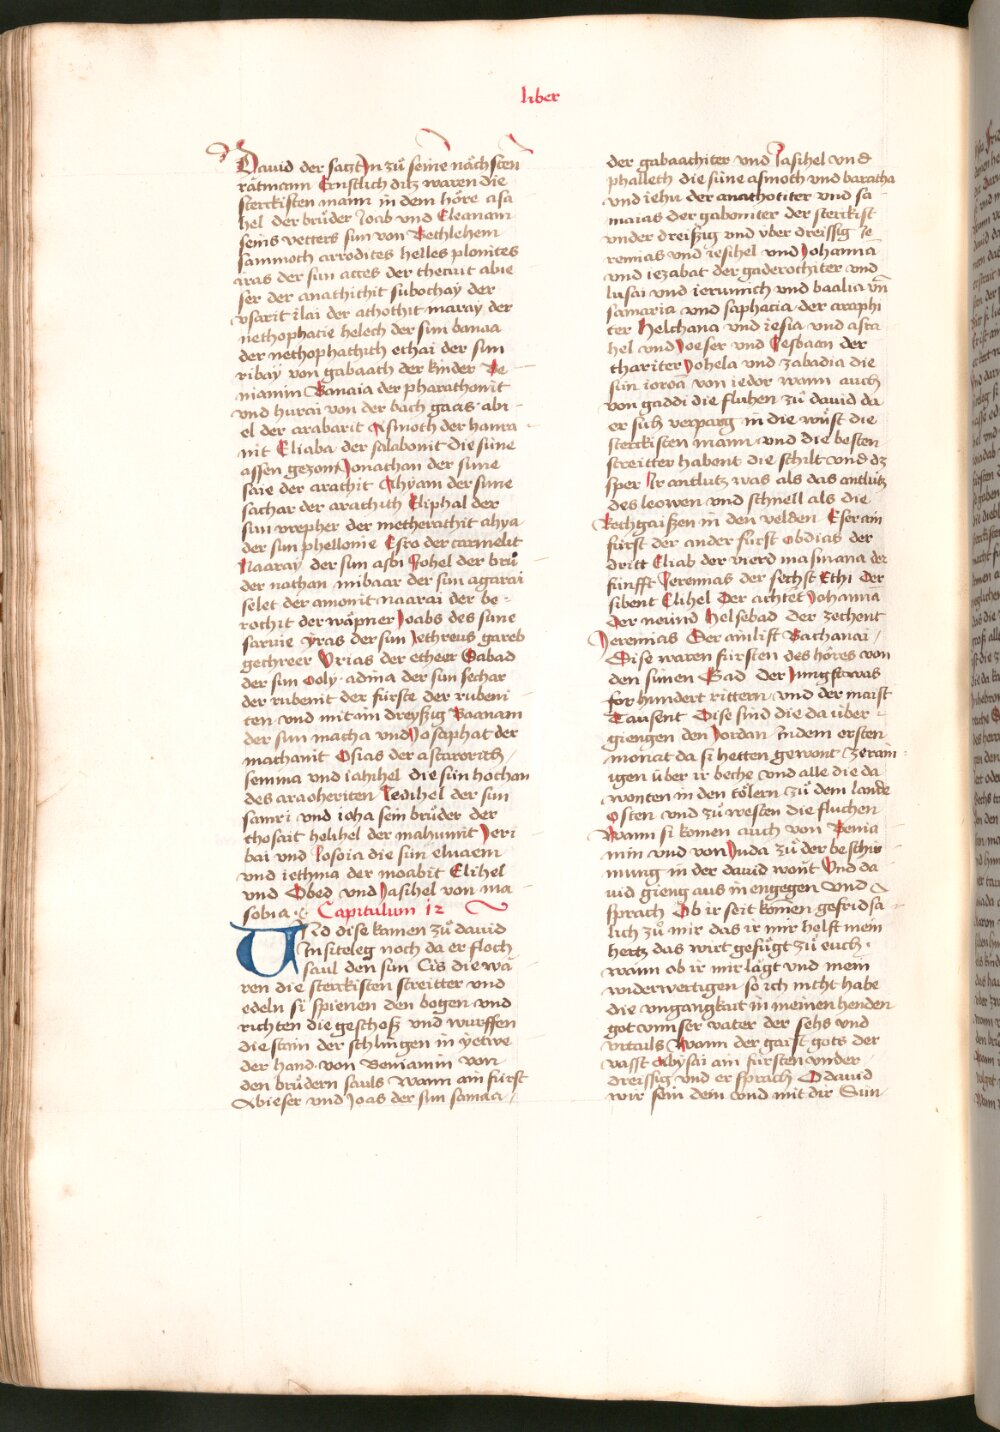 liber
Dauid der satzt In zů seine nächsten
rätmann Ernstlich ditz waren die
sterckisten mann in dem höre asa
hel der brůder Joab vnd Eleanam
seins vetters sun von Bethlehem
sammoth arrodites helles plonites
iras der sun acces der thecuit abie
ser der anathithit subochay der
vsarit ilai der achothit maray der
nethophatie helech der sun banaa
der nethophathith ethai der sun
ribay von gabaath der kinder Be
niamin Banaia der pharathonit
vnd hurai von der bach gaas abi
el der arabarit Asmoth der hamra
nit Eliaba der salabonit die süne
assen gezom Jonathan der sune
saie der arathit Ahyam der sune
sachar der arathith Eliphal der
sun vrepher der metherathit ahya
der sun phellonie Esro der carmelit
Naaray der sun asbi Johel der brů
der nathan mibaar der sun agarai
selet der amonit naarai der be
rothit der wäpner Joabs des sune
saruie yras der sun Jethreus gareb
gethreer Vrias der etheer Sabad
der sun Ooly adina der sun sechar
der rubenit der fürste der rubeni
ten vnd mit am dreyszig Baanam
der sun macha vnd Josaphat der
mathanit Osias der astarorith
semma vnd iahihel die sün hochan
des araoheriten Jedihel der sun
samri vnd ioha sein brůder der
thosait helihel der mahumit Jeri
bai vnd Josoia die sün elnaem
vnd iethma der moabit Elihel
vnd Obed vnd Jasihel von ma
sobia Capitulum 12
Und dise kamen zů dauid
In siteleg noch da er floch
saul den sun Cis die wa
ren die sterckisten streitter vnd
edeln si spienen den bogen vnd
richten die geschosz vnd wurffen
die stain der schlingen in yetwe
der hand von Beniamin von
den brůdern sauls wann ain fürst
Abieser vnd Joas der sun samaa
der gabaathiter vnd Jasihel vnd
phalleth die süne asmoth vnd baratha
vnd iehu der anathotiter vnd sa
maias der gaboniter der sterckist
vnder dreiszig vnd über dreissig ie
remias vnd iesihel vnd Johannā
vnd iezabat der gaderothiter vnd
lusai vnd ierimuth vnd baalia vn̄
samaria vnd saphatia der araphi
ter Helchana vnd iesia vnd asra
hel vnd Joeser vnd Jesbaan der
chariter Johela vnd zabadia die
sün ioroā von iedor wann auch
von gaddi die fluhen zů dauid da
er sich verparg in die wůst die
sterckisten mann vnd die besten
streitter habent die schilt vnd dz
sper Ir antlutz was als das antlutz
des leowen vnd schnell als die
Rechgaiszen in den velden Eser ain
fürst der ander fürst Obdias der
dritt Eliab der vierd masmana der
fünfft Jeremias der sechst Ethi Der
sibent Elihel Der achtet Johannā
Der neünd Helsebad der zechent
Jeremias Der ainlift Bachanai
Dise waren fürsten des höres von
den sünen Gad Der Jungst was
for hundert rittern vnd der maist
Tausent Dise sind die da über
giengen den Jordan Indem ersten
monat da si hetten gewont zerain
igen über ir beche vnd alle die da
wonten in den tölern zů dem lande
Osten vnd zů westen die fluchen
Wann si komen auch von Benia
min vnd von Juda zů der beschir
mung in der dauid wont Vnd da
uid gieng aus in engegen vnd
sprach Ob ir seit komen gefridsa
lich zů mir das ir mir helft mein
hertz das wirt gefügt zů euch
wann ob ir mir lagt vnd mein
widerwertigen so ich nicht habe
die vngangkait in meinen henden
got vnnser vater der sehs vnd
vrtails Wann der gaist gots der
vasst Abysai ain fürsten vnder
dreissig vnd er sprach O dauid
wir sein dein vnd mit dir Sun